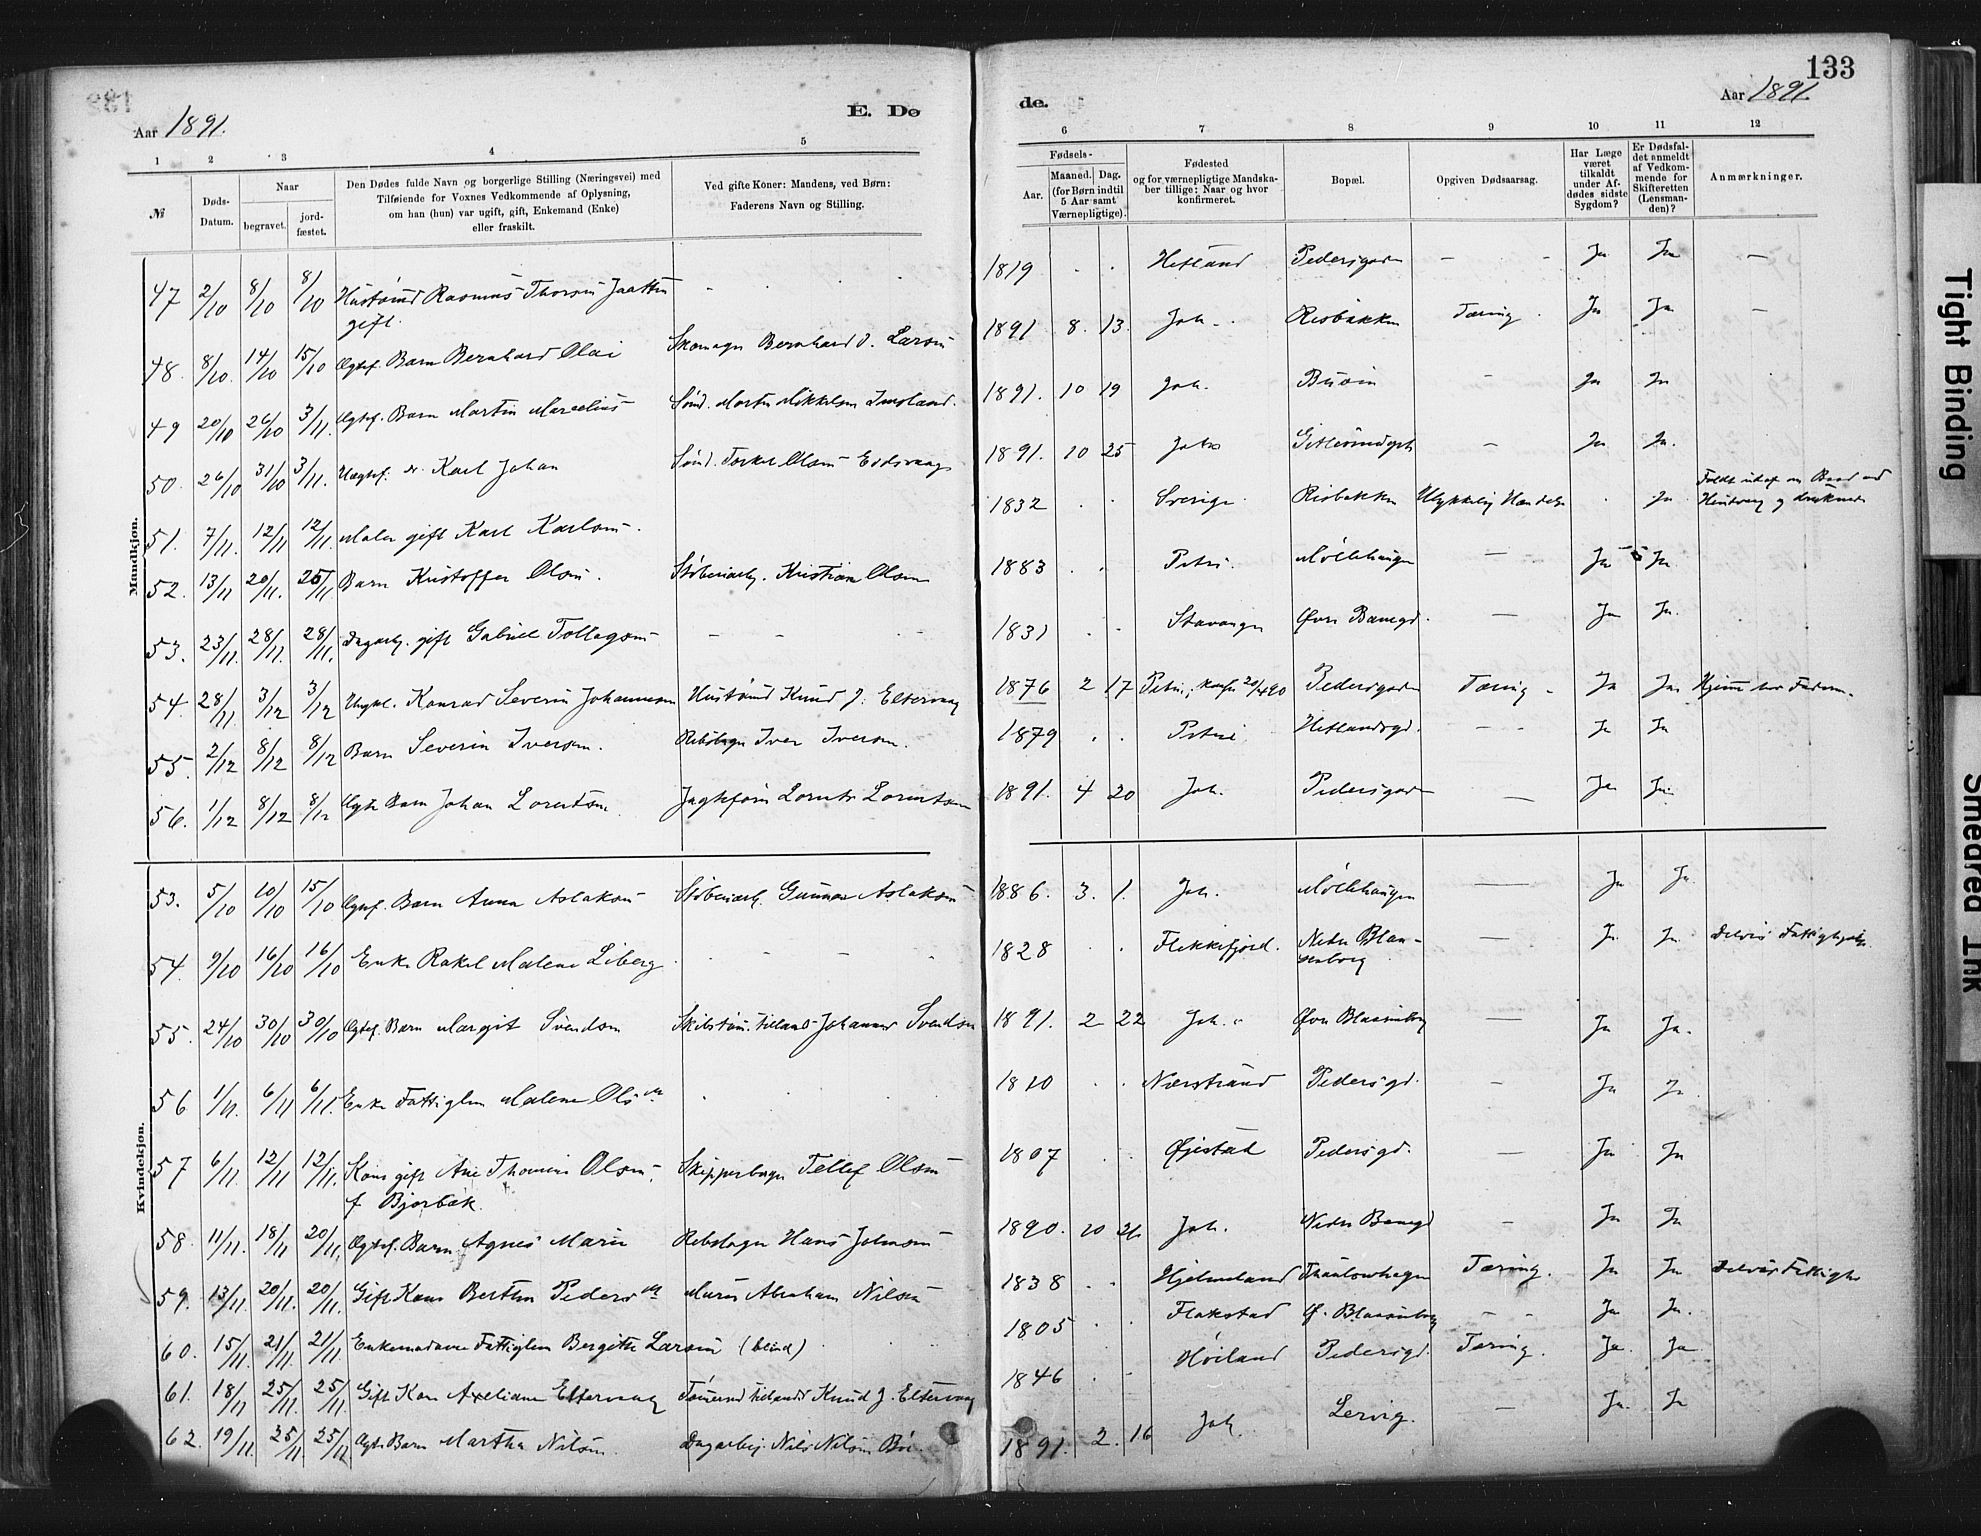 133
Aar 1891.
E. Dø
de.
Aar 1891.
1 2 3 4 5
6 7 8 9 10 11 12
№
Døds-Datum.
Naar
begravet.
jord-fæstet.
Den Dødes fulde Navn og borgerlige Stilling (Næringsvei) med
Tilføiende for Voxnes Vedkommende af Oplysning,
om han (hun) var ugift, gift, Enkemand (Enke)
eller fraskilt.
Ved gifte Koner: Mandens, ved Børn:
Faderens Navn og Stilling.
Fødsels-
Aar.
Maaned. Dag.
(for Børn indtil
5 Aar samt
Værnepligtige).
Fødested
og for værnepligtige Mandska-
ber tillige: Naar og hvor
konfirmeret.
Bopæl.
Opgiven Dødsaarsag.
Har Læge
været
tilkaldt
under Af-
dødes sidste
Sygdom?
Er Dødsfal-
det anmeldt
af Vedkom-
mende for
Skifteretten
(Lensman-
den)?
Anmærkninger.
Mandkjøn.
47 2/10 8/10 8/10 Rasmus Thorsen Jaatten 1819 . . Hetland Pedersgaden — - Ja Ja —
gift.
48. 8/10. 14/10 15/10 Ægtef. Barn Bernhard Olai Skomager Bernhard O. Larsen 1891 8. 13. Joh. Risbakken Tæring Ja Ja —
49 20/10 26/10 3/11. Ægtef. Barn Martin Marcelius Morten Mikkelsen Imsland. 1891. 10 19 Joh. Buøen - Ja Ja
50. 26/10 31/10 3/11. Uægtef. Karl Johan Torkel Olsen 1891. 10 25 Joh. — Ja Ja.
51. 7/11. 12/11 12/11. Maler gift Karl Karlsen. 1832 . . Sverige. Risbakken Ulykkelig Hændelse . Ja
52. 13/11 20/11. 25/11. Barn Kristoffer Olsen. Støberiarb. Kristian Olsen 1883 . . Petri. Møllehaugen — Ja Ja
53. 23/11. 28/11. 28/11. Dagarb. gift Gabriel Tollagsen — — 1831 . . Stavanger Øvre Banegd. — Ja Ja.
54. 28/11 3/12 3/12 Ungkl. Konrad Severin Johannesen Knud J. Eltervaag 1876 2 17 Petri, konf. 20/4 90 Pedersgaden Tæring Ja Ja Hjemme hos Faderen.
55. 2/12 8/12 8/12 Barn Severin Iversen. Rebslager Iver Iversen. 1879 . . Petri Hetlandsgd. — Ja Ja
56. 1/12 8/12 8/12 Ægte Barn Johan Lorentsen. Lorents Lorentsen 1891. 4 20 Joh. Pedersgaden — Ja Ja
Kvindekjøn.
53. 5/10 10/10 15/10 Ægtef. Barn Anna Aslaksen Støberiarb. Gunnar Aslaksen 1886. 3. 1. Joh. Møllehaugen — Ja Ja
54. 9/10 16/10 16/10 Enke Rakel Malene Liberg - - 1828 . . Flekkefjord. Nedre Blaa-
senborg — Ja Ja Delvis
55. 24/10 30/10 30/10 Ægtef. Barn Margit Svendsen Johannes Svendsen 1891. 2 22 Joh. Øvre Blaasenborg — Ja Ja.
56 1/11. 6/11 6/11. Enke Fattiglem Malene Olsen 1810 . . Nærstrand Pedersgd. — Ja Ja.
57 6/11. 12/11 12/11. Kone gift Ane Thomine Olsen, Tellef Olsen 1807 . . Øjestad Pedersgd. — Ja Ja
f Bjorbæk.
58. 11/11. 18/11 20/11. Ægtef. Barn Agnes Marie Rebslager Hans Johnsen 1890. 10 Joh. Nedre Banegd — Ja Ja
59. 13/11. 20/11. 20/11. Gift Kone Berthe Pedersen Murer Abraham Nilsen 1838 . . Hjelmeland Tæring. Ja Ja Delvis
60. 15/11. 21/11. 21/11. Enkemadame Fattiglem Bergitte Larsen (blind) 1805 . . Flakstad Ø. Blaasenborg - - Ja Ja.
61. 18/11 25/11. 25/11. Gift Kone Axeliane Eltervaag Knud J. Eltervaag 1846 . . Høiland Pedersgd. Tæring. Ja. Ja
62. 19/11. 25/11 25/11 Ægte Barn Martha Nilsen Dagarbej. Nils Nilsen Bø. 1891. 2. 16 Joh. Lervig. — Ja. Ja
Tight Binding
Smeared Ink